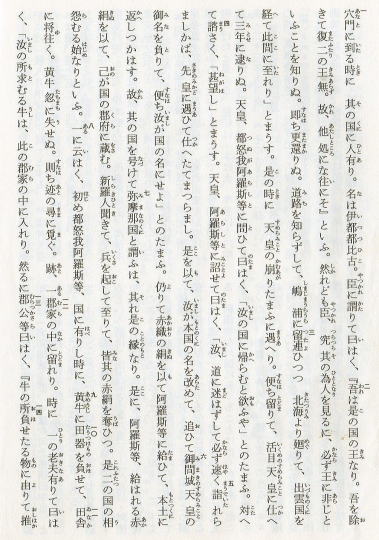 穴門に到る時に、其の国に人有り。名は伊都都比古。臣に謂りて曰はく、『吾は是の国の王なり。吾を除
きて復二の王無。故、他処にな往にそ』といふ。然れども臣、究其の為人を見るに、必ず王に非じと
いふことを知りぬ。即ち更還りぬ。道路を知らずして、嶋浦に留連ひつつ、北海より廻りて、出雲国を
経て此間に至れり」とまうす。是の時に、天皇の崩りたまふに遇へり。便ち留りて、活目天皇に仕へ
て三年に逮りぬ。天皇、都怒我阿羅斯等に問ひて曰はく、「汝の国に帰らむと欲ふや」とのたまふ。対へ
て諮さく、「甚望し」とまうす。天皇、阿羅斯等に詔せて曰はく、「汝、道に迷はずして必ず速く詣れら
ましかば、先皇に遇ひて仕へたてまつらまし。是を以て、汝が本国の名を改めて、追ひて御間城天皇の
御名を負りて、便ち汝が国の名にせよ」とのたまふ。仍りて赤織の絹を以て阿羅斯等に給ひて、本土に
返しつかはす。故、其の国を号けて弥摩那国と謂ふは、其れ是の縁なり。是に、阿羅斯等、給はれる赤
絹を以て、己が国の郡府に蔵む。新羅人聞きて、兵を起して至りて、皆其の赤絹を奪ひつ。是二の国の相
怨むる始なりといふ。一に云はく、初め都怒我阿羅斯等、国に有りし時に、黄牛に田器を負せて、田舎
に将往く。黄牛忽に失せぬ。則ち迹の尋に覓ぐ。跡、一郡家の中に留れり。時に、一の老夫有りて曰は
く、「汝の所求むる牛は、此の郡家の中に入れり。然るに郡公等曰はく、『牛の所負せたる物に由りて推